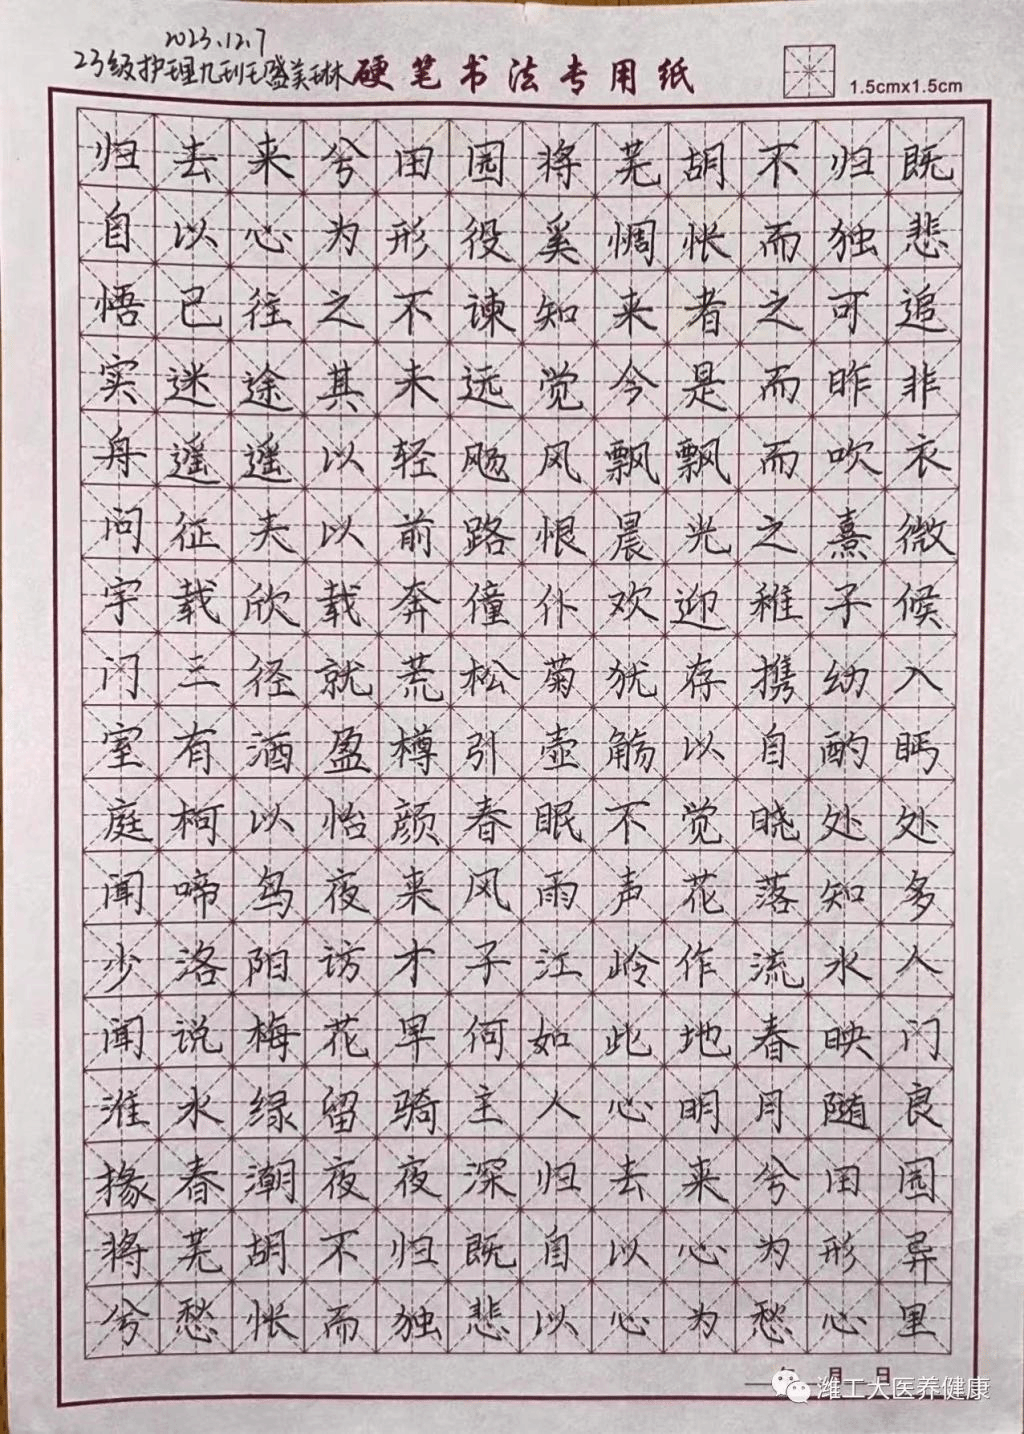 2023.12.7
23级护理九班王盛美琳 硬笔书法专用纸 1.5cmx1.5cm
归去来兮田园将芜胡不归既
自以心为形役奚惆怅而独悲
悟已往之不谏知来者之可追
实迷途其未远觉今是而昨非
舟遥遥以轻飏风飘飘而吹衣
问征夫以前路恨晨光之熹微
宇载欣载奔僮仆欢迎稚子候
门三径就荒松菊犹存携幼入
室有酒盈樽引壶觞以自酌眄
庭柯以怡颜春眠不觉晓处处
闻啼鸟夜来风雨声花落知多
少洛阳访才子江岭作流水人
闻说梅花早何如此地春映门
淮水绿留骑主人心明月随良
掾春潮夜夜深归去来兮田园
将芜胡不归既自以心为形异
兮愁怅而独悲以心为愁心里
年 月 日
潍工大医养健康